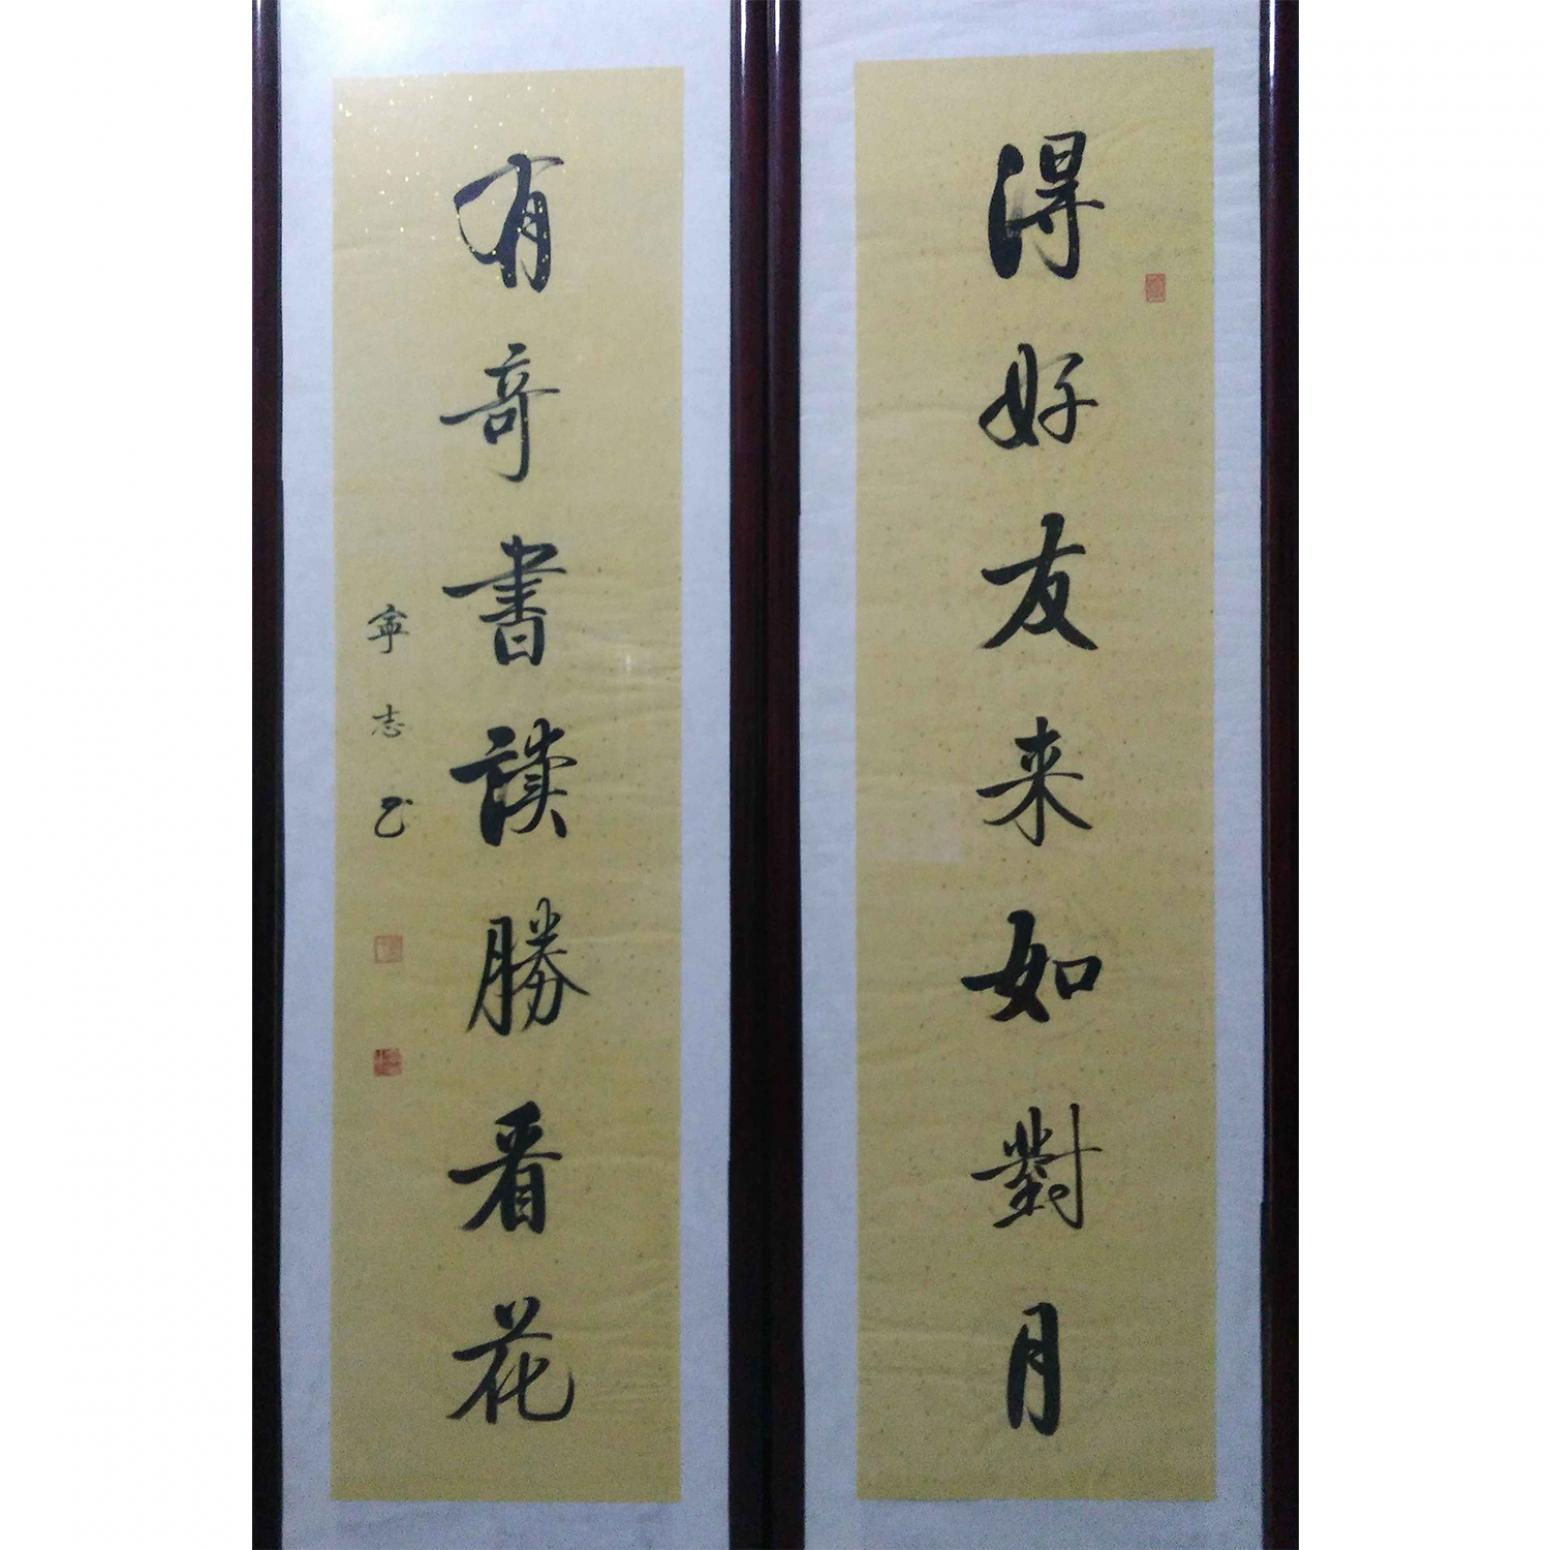 得好友来如對月
有奇書讀勝看花
寧志